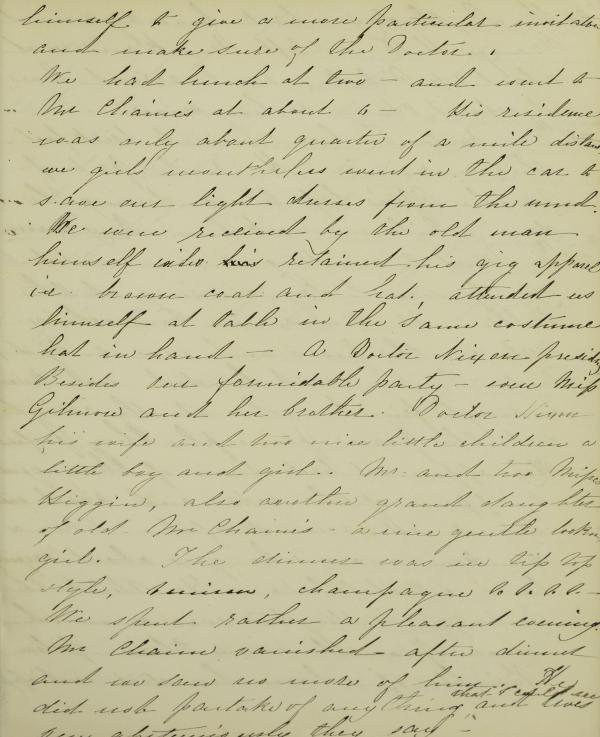 himself to give a more particular invitation
and make sure of the Doctor.
We had lunch at two - and went to
Mr Chaine's at about 6 - His residence
was only about quarter of a mile distan
we girls nonetheless went in the car to
save our light dresses from the mud.
We were received by the old man
himself who his retained his gig apparel
i.e. brown coat and hat, attended us
himself at table in the same costume
hat in hand - A Doctor Nixon presidg
Besides our formidable party - were Miss
Gilmore and her brother. Doctor Nixon
his wife and two nice little children a
little boy and girl. Mr and two Miss
Higgin, also another grand daughter
of old Mr Chaine's - a nice gentle lookin
girl. The dinner was in tip top
style, venison, champagne &.&.&.-
We spent rather a pleasant evening.
Mr Chaine vanished after dinner
and we saw no more of him. He
did not partake of any thing that I could see and lives
very abstemiously they say -